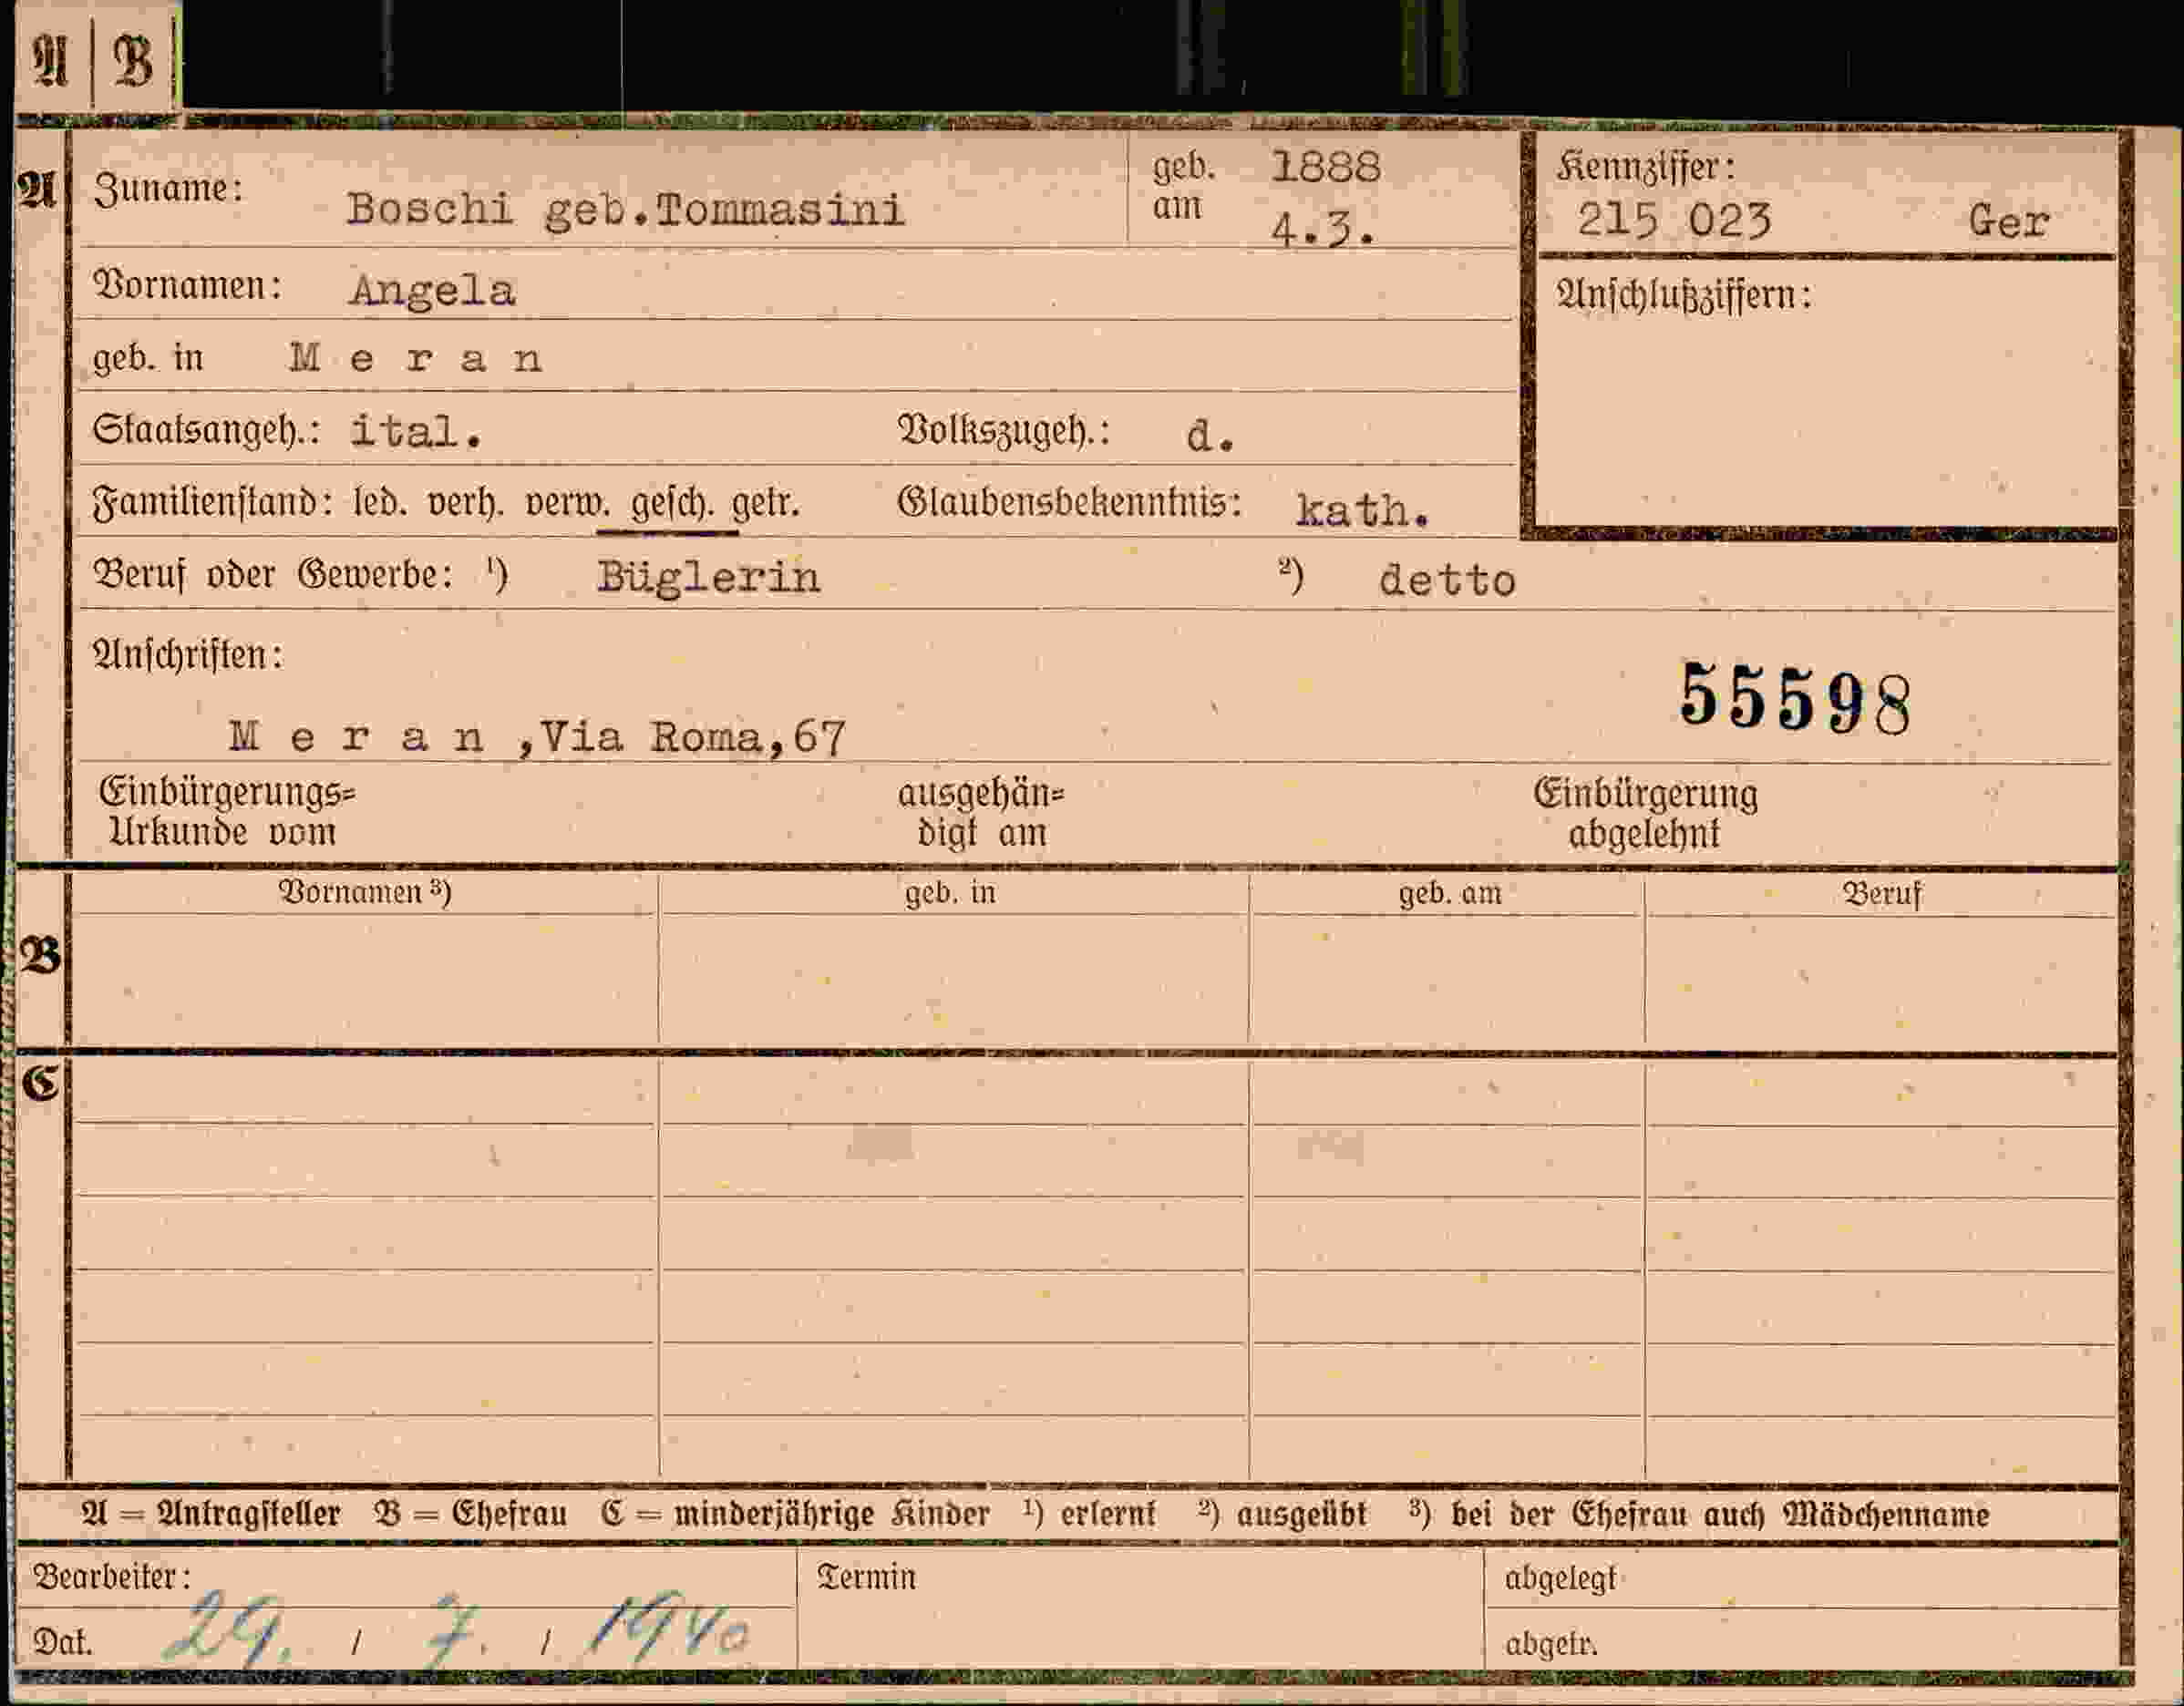 A | B
A Zuname: Boschi geb.Tommasini geb. am 1888 4.3. Kennziffer: 215 023 Ger
Vornamen: Angela Anschlußziffern:
geb. in M e r a n
Staatsangeh.: ital. Volkszugeh.: d.
Familienstand: led. verh. verw. gesch. getr. Glaubensbekenntnis: kath.
Beruf oder Gewerbe: ¹) Büglerin ²) detto
Anschriften:
55598
M e r a n ,Via Roma,67
Einbürgerungs= ausgehän= Einbürgerung
Urkunde vom digt am abgelehnt
Vornamen ³) geb. in geb. am Beruf
B
C
A = Antragsteller B = Ehefrau C = minderjährige Kinder ¹) erlernt ²) ausgeübt ³) bei der Ehefrau auch Mädchenname
Bearbeiter: Termin abgelegt
Dat. 29. / 7. / 1940 abgetr.